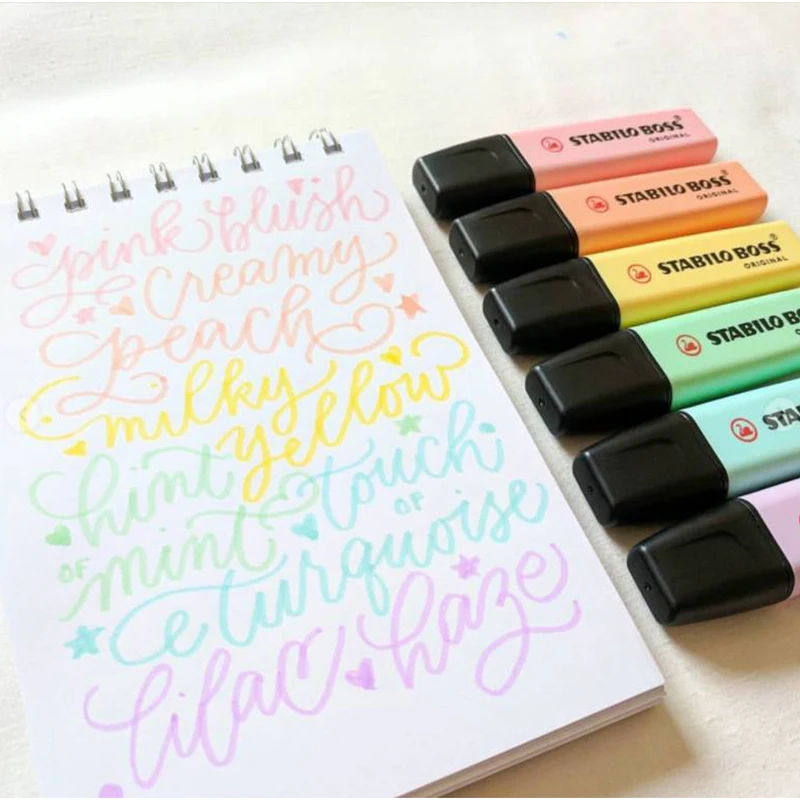 pink blush
creamy
peach
milky
yellow
hint
of
mint
touch
of
turquoise
lilac haze
STABILO BOSS®
ORIGINAL
STABILO BOSS®
ORIGINAL
STABILO BOSS®
ORIGINAL
STABILO BOSS